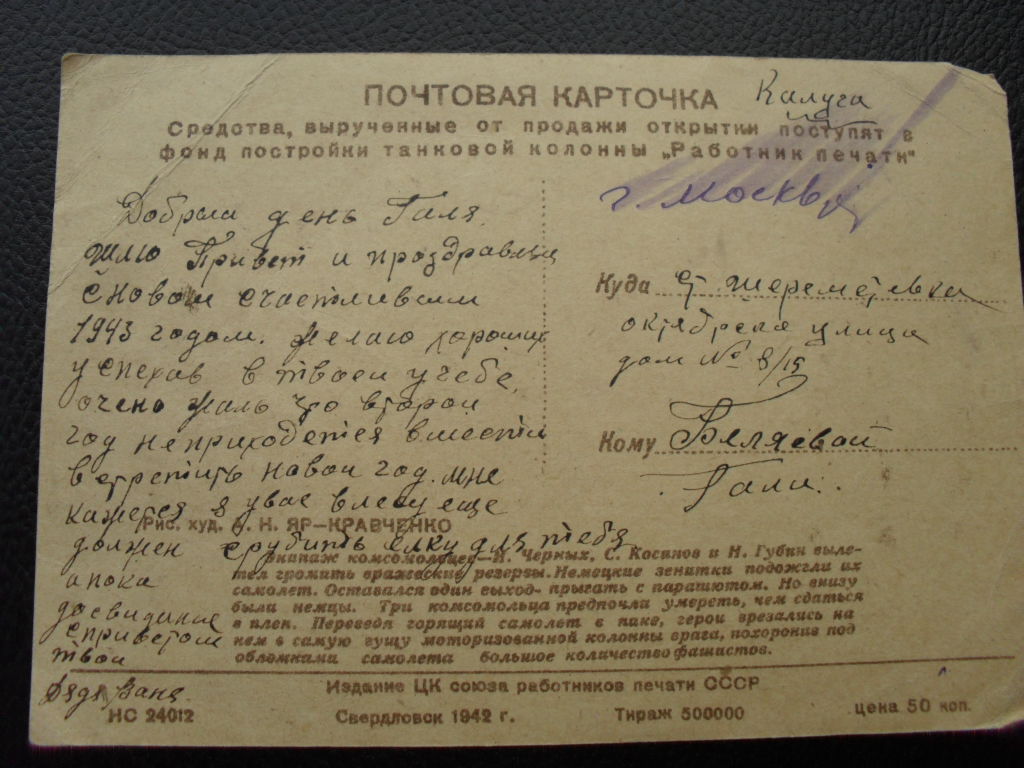 ПОЧТОВАЯ КАРТОЧКА
Калуга
Средства, вырученные от продажи открытки поступят в
фонд постройки танковой колонны „Работник печати"
г. Москва
Куда ст Шереметевка
октябрская улица
дом № 8/15
Кому Беляевой
Гали.
Доброй день Галя
шлю Привет и поздравляю
с новом счастливым
1943 годом. Желаю хороших
успехов в твоей учебе,
очено жаль что второй
год неприходется вместе
встретить новой год. мне
кажется я увас влесу еще
должен срубить елку для тебя
а пока
досвидание
сприветом
твой
дядя Ваня.
Рис. худ. А. Н. ЯР-КРАВЧЕНКО
Экипаж комсомольцев—И. Черных, С. Косинов и Н. Губин выле-
тел громить вражеские резервы. Немецкие зенитки подожгли их
самолет. Оставался один выход- прыгать с парашютом. Но внизу
были немцы. Три комсомольца предпочли умереть, чем сдаться
в плен. Переведя горящий самолет в пике, герои врезались на
нем в самую гущу моторизованной колонны врага, похоронив под
обломками самолета большое количество фашистов.
Издание ЦК союза работников печати СССР
НС 24012 Свердловск 1942 г. Тираж 500000 цена 50 коп.